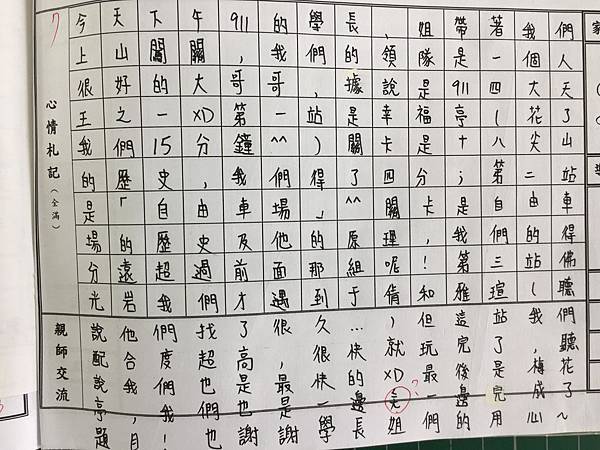 7
今天下午911的學長、姐帶著我們
上山闖關,我們的領隊是一個人
很好的大哥哥,據說是911四大天
王之一XD第一站是幸福亭(花了
我們15分鐘^^)關卡是十八尖山
的歷史,我們得了四分;第二站
是「自由車場」^^關卡是自由車
場的歷史及他的原理,我們的得
分遠超過前面那組呢!第三站佛
光岩我們才遇到于倩和雅瑄(聽
說他們找了很久…)但這站我們
配合度超高,很快就玩完了,聽
說我們也是最快的XD最後是梅花
亭,我們也是一邊走一邊完成了
題目!也謝謝學長姐們的用心~
?
心情札記(全滿)
親師交流